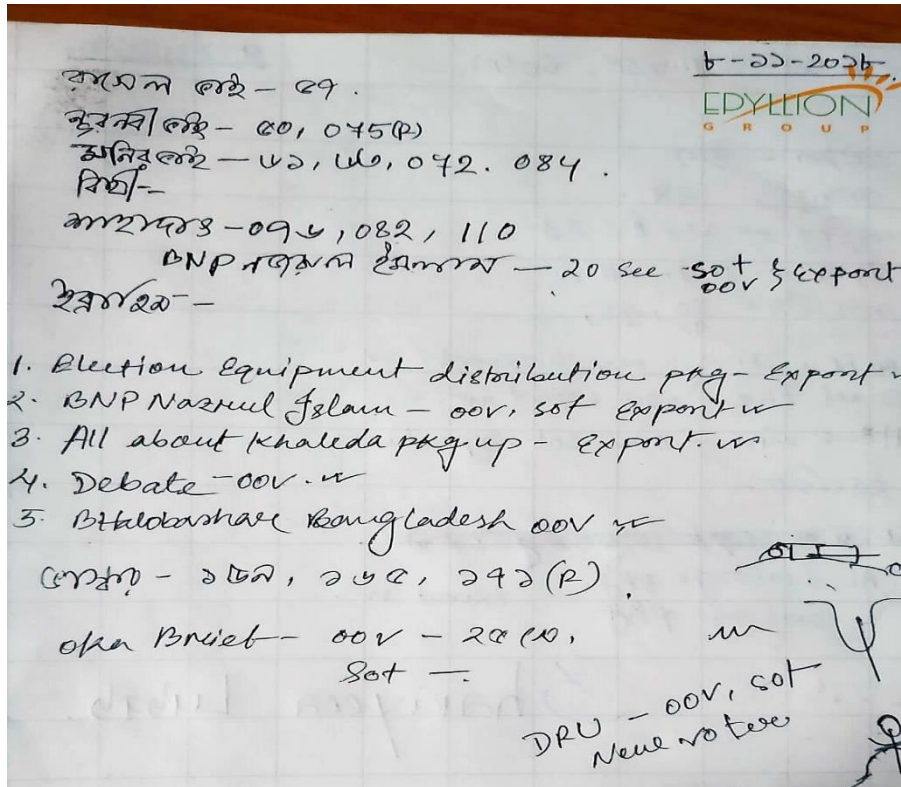 ৮-১১-২০১৮
EPYLLION
GROUP
রাসেল ভাই - ৫৭.
নূরনবী ভাই - ৫০, 075(R)
মনির ভাই - ৬১, ৬৬, 072. 084.
শাহাদাৎ - ০৭৬, 082, 110
BNP নজরুল ইসলাম - 20 sec sot oov } Export
ইব্রাহিম -
1. Election Equipment distribution pkg - Export
2. BNP Nazrul Islam - oov, sot Export
3. All about Khaleda pkg up - Export.
4. Debate - oov.
5. BHalobashare Bangladesh oov
- ১৬৫, ১৭১(R)
Brief - oov -
Sot -
DRU - oov, sot
New voter